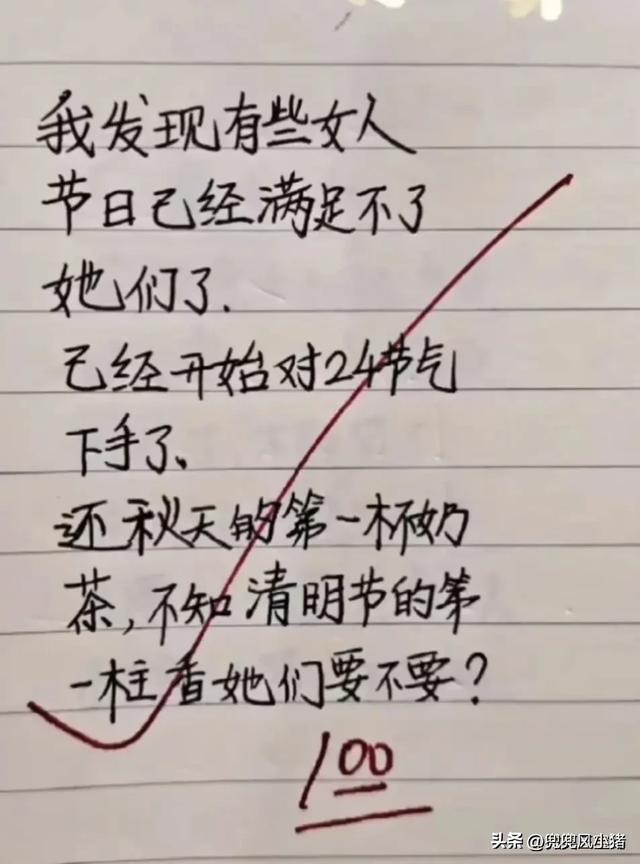 我发现有些女人
节日已经满足不了
她们了.
已经开始对24节气
下手了、
还秋天的第一杯奶
茶,不知清明节的第
一柱香她们要不要?
100
头条 @兜兜风生猪